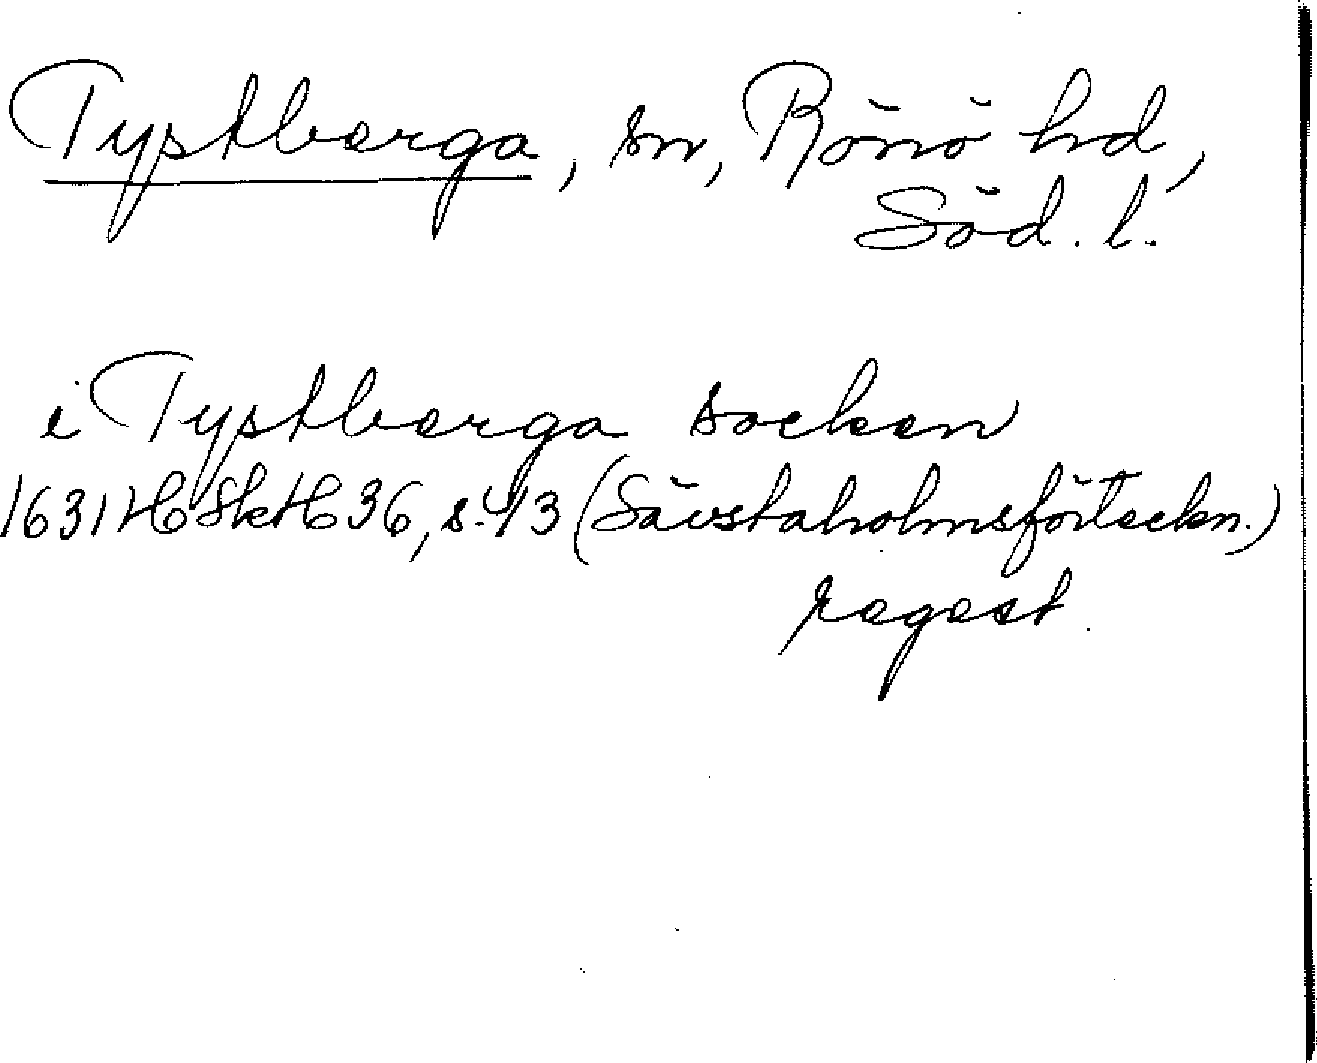 Tystberga, sn, Rönö hd,
Söd. l.
i Tystberga socken
1631 HSkH 36, s. 43 (Sävstaholmsförteckn.)
regest.